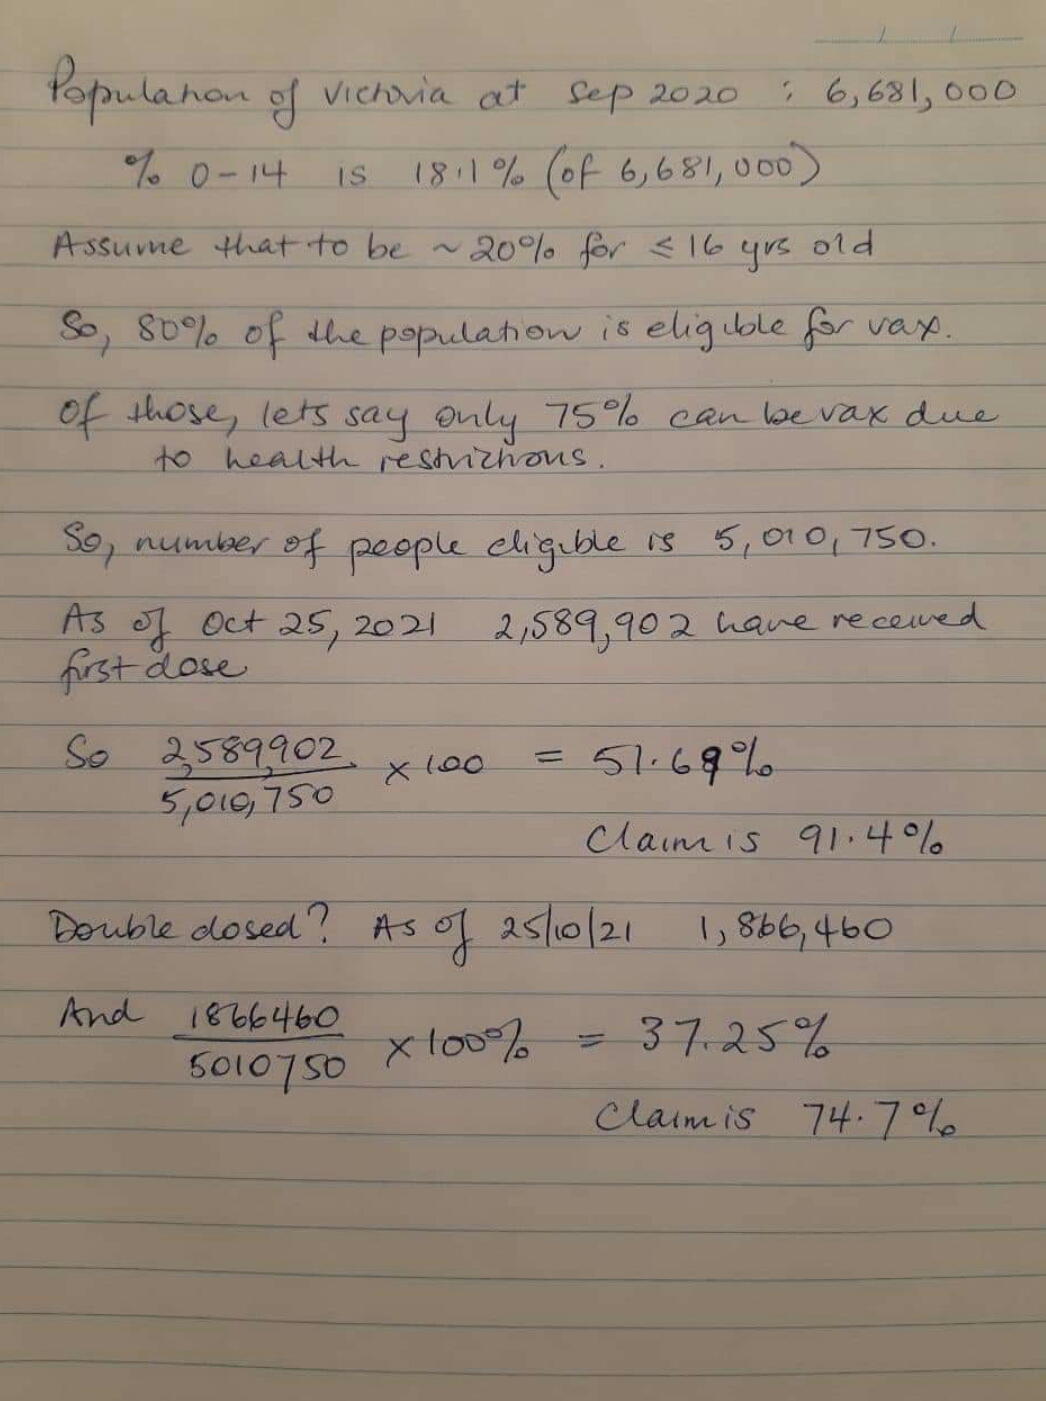 Population of Victoria at Sep 2020 : 6,681,000
% 0-14 is 18.1% (of 6,681,000)
Assume that to be ~20% for ≤ 16 yrs old
So, 80% of the population is eligible for vax.
Of those, lets say only 75% can be vax due
to health restrictions.
So, number of people eligible is 5,010,750.
As of Oct 25, 2021 2,589,902 have received
first dose
So 2,589,902 / 5,010,750 × 100 = 51.69%
Claim is 91.4%
Double dosed? As of 25/10/21 1,866,460
And 1866460 / 5010750 × 100% = 37.25%
Claim is 74.7%